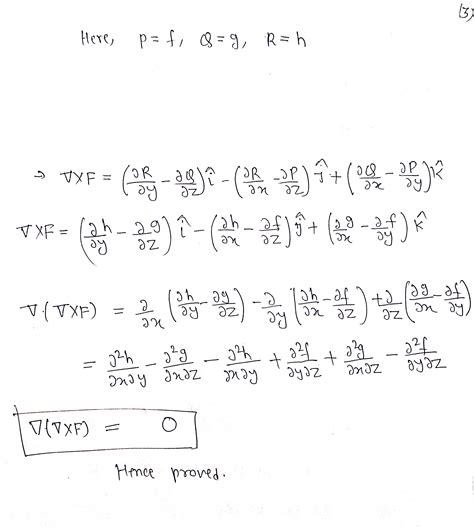 (3)
Here, P = f, Q = g, R = h
→ ∇×F = (∂R/∂y − ∂Q/∂z) î − (∂R/∂x − ∂P/∂z) ĵ + (∂Q/∂x − ∂P/∂y) k̂
∇×F = (∂h/∂y − ∂g/∂z) î − (∂h/∂x − ∂f/∂z) ĵ + (∂g/∂x − ∂f/∂y) k̂
∇·(∇×F) = ∂/∂x (∂h/∂y − ∂g/∂z) − ∂/∂y (∂h/∂x − ∂f/∂z) + ∂/∂z (∂g/∂x − ∂f/∂y)
= ∂²h/∂x∂y − ∂²g/∂x∂z − ∂²h/∂x∂y + ∂²f/∂y∂z + ∂²g/∂x∂z − ∂²f/∂y∂z
∇(∇×F) = 0
Hence proved.